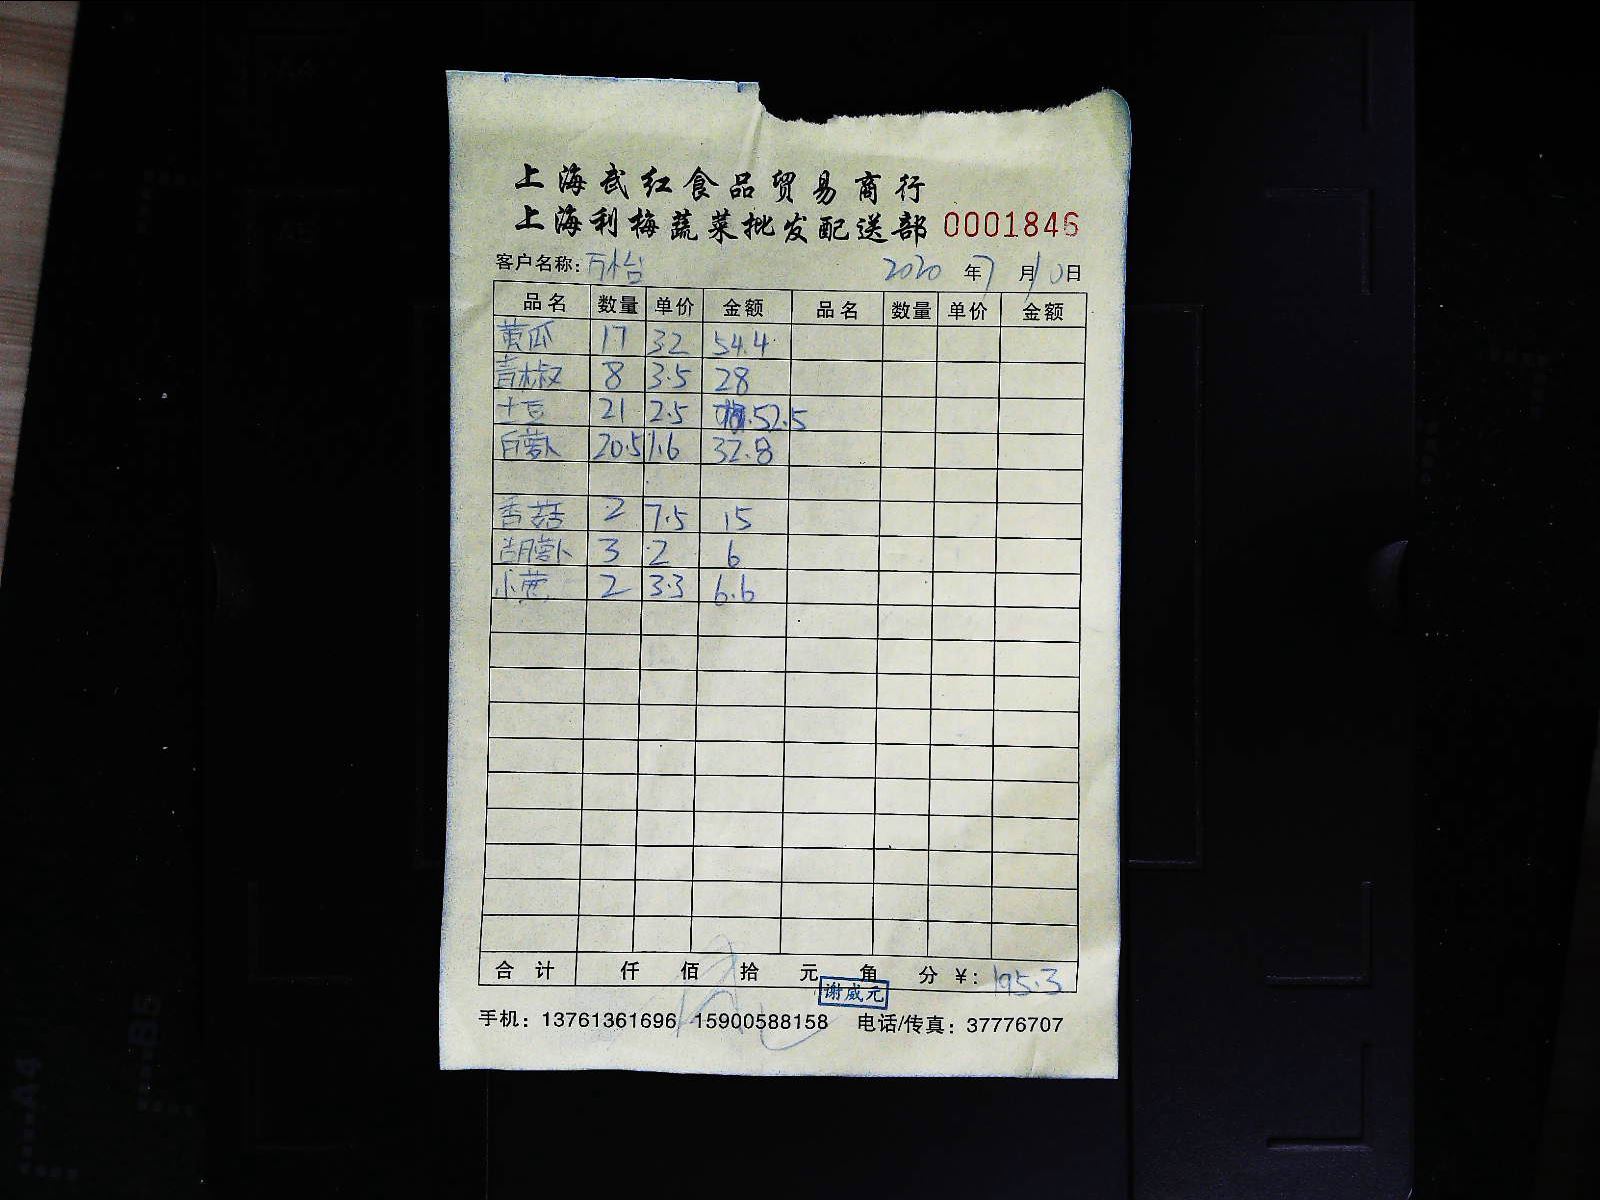 上海武红食品贸易商行
上海利梅蔬菜批发配送部 0001846
客户名称: 万怡 2020 年 7 月 10 日
品名 数量 单价 金额 品名 数量 单价 金额
黄瓜 17 32 54.4
青椒 8 3.5 28
土豆 21 2.5 52.5
白萝卜 20.5 1.6 32.8
香菇 2 7.5 15
胡萝卜 3 2 6
小葱 2 3.3 6.6
合计 仟 佰 拾 元 角 分 ¥: 195.3
谢威元
手机: 13761361696 15900588158 电话/传真: 37776707
A4
B5